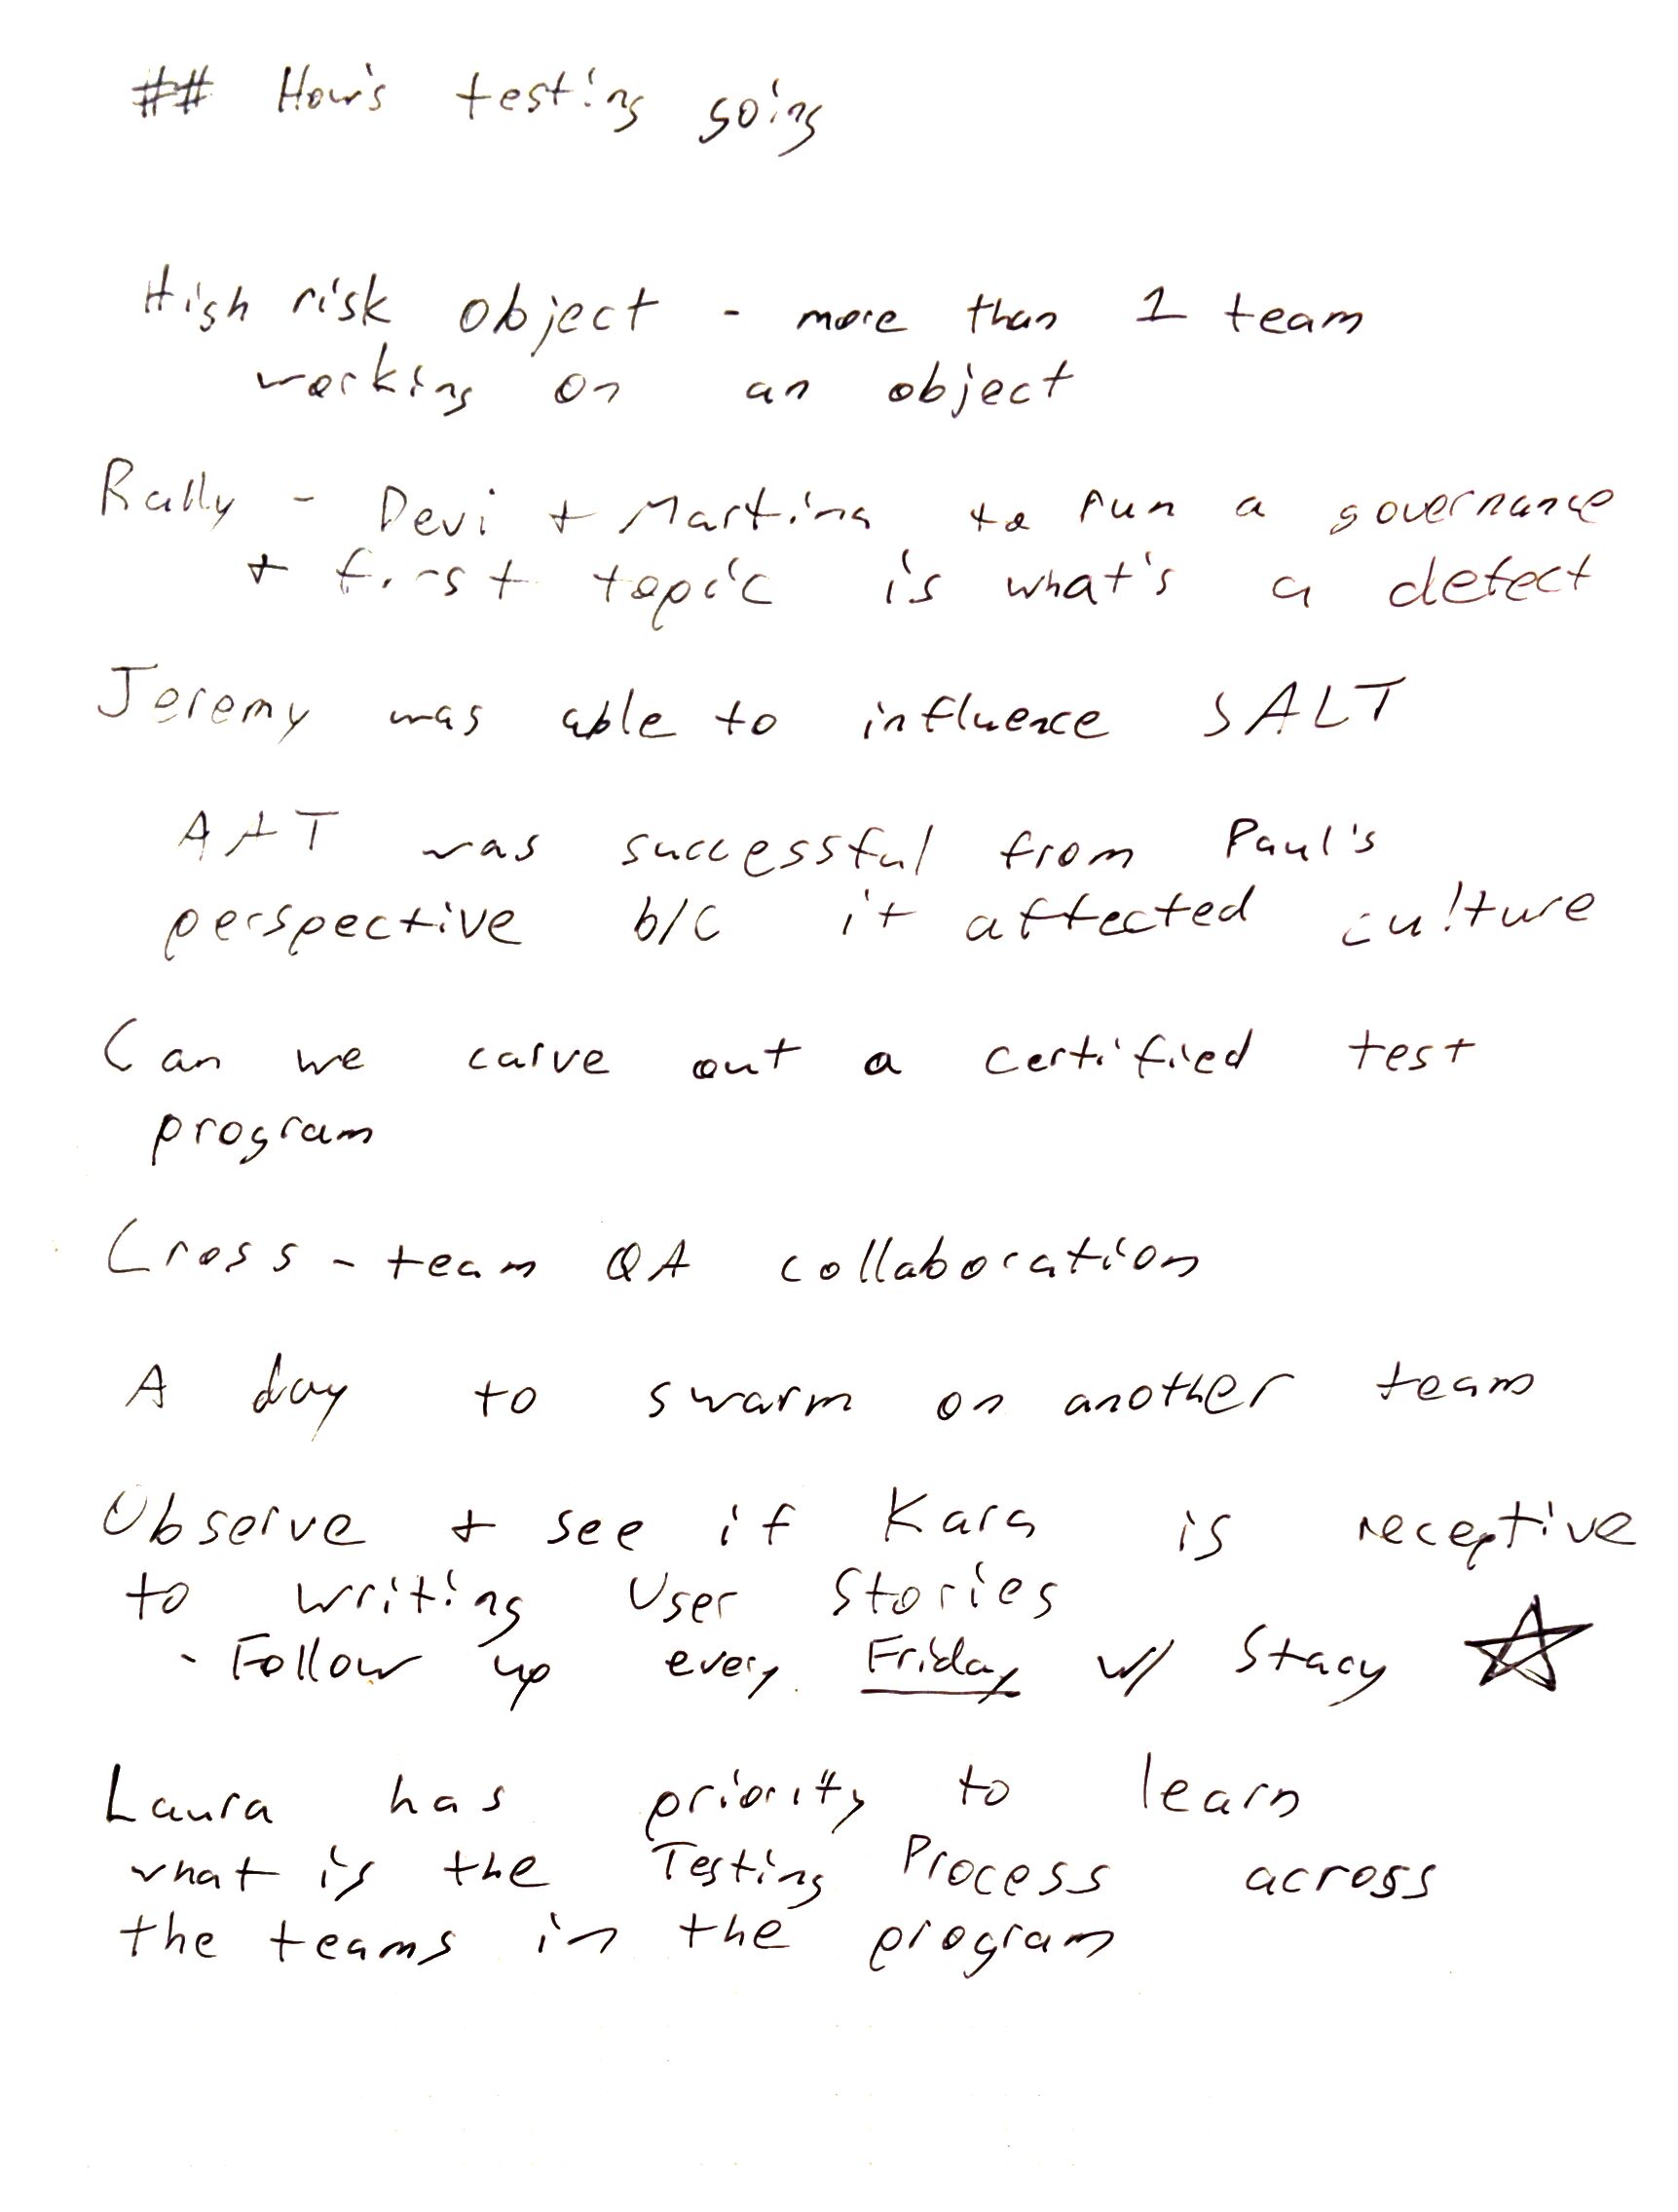 ## How's testing going
High risk object - more than 1 team
working on an object
Rally - Devi + Martina to run a governance
+ first topic is what's a defect
Jeremy was able to influence SALT
A+T was successful from Paul's
perspective b/c it affected culture
Can we carve out a certified test
program
Cross-team QA collaboration
A day to swarm on another team
Observe + see if Kara is receptive
to writing User Stories
- Follow up every Friday w/ Stacy
Laura has priority to learn
what is the Testing Process across
the teams in the program